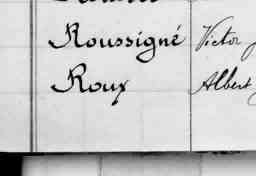 Roussigné Victor
Roux Albert